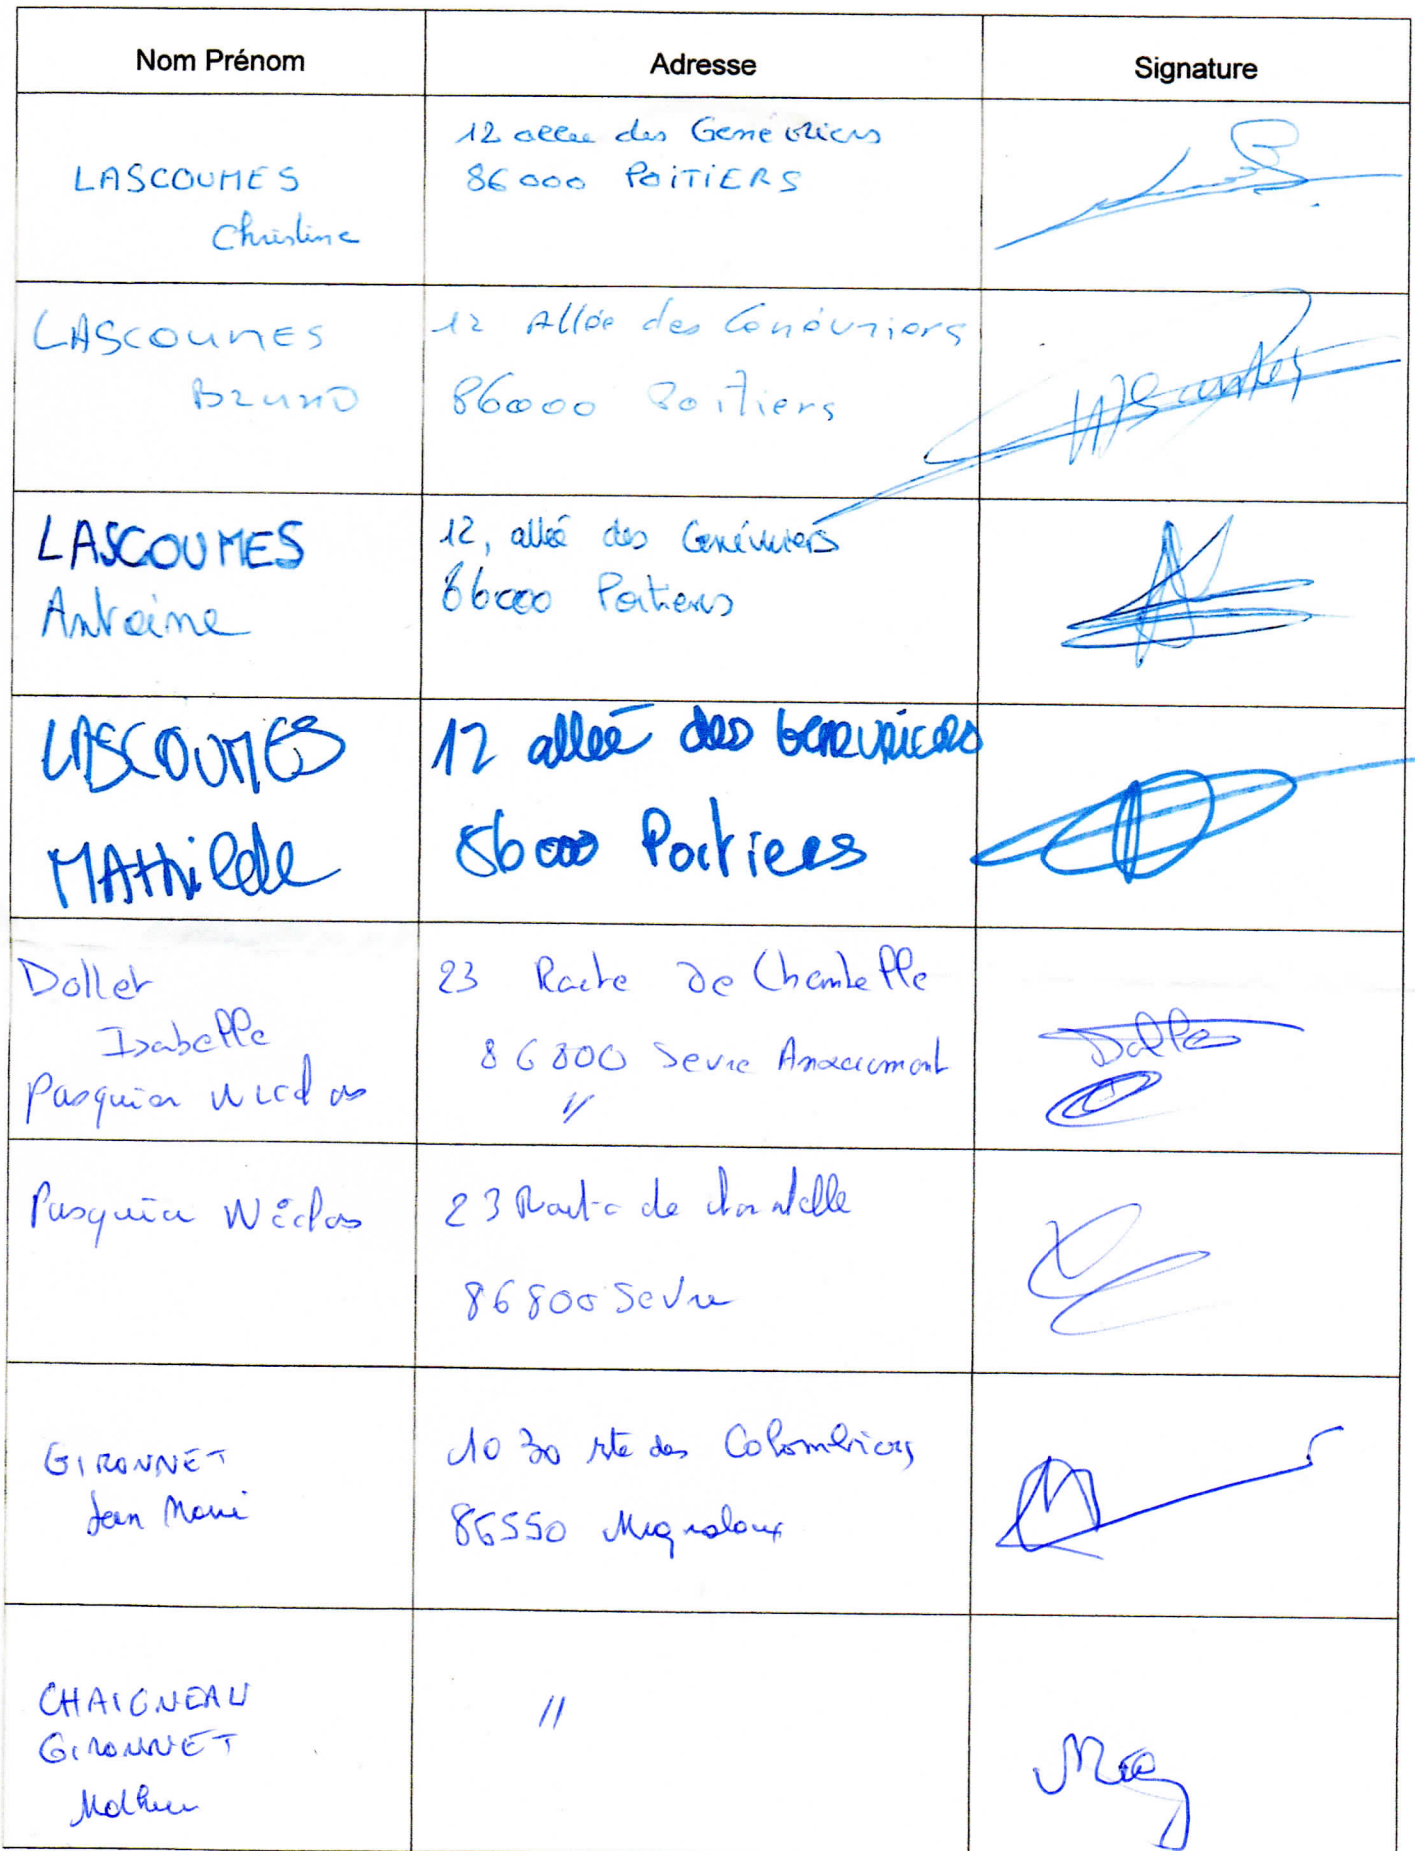 Nom Prénom
Adresse
Signature
LASCOUMES
Christine
12 allée des Genévriers
86000 POITIERS
LASCOUMES
Bruno
12 Allée des Genévriers
86000 Poitiers
LASCOUMES
Antoine
12, allée des Genévriers
86000 Poitiers
LASCOUMES
MAThilde
12 allée des Genevriers
86000 Poitiers
Dollet
Isabelle
Pasquier Nicolas
23 Route De Chantelle
86800 Sevre Anxaumont
//
Dollet
Pasquier Nicolas
23 Route de chantelle
86800 Sevre
GIRONNET
Jean Marie
1030 rte des Colombiers
86550 Mignaloux
CHAIGNEAU
GIRONNET
//